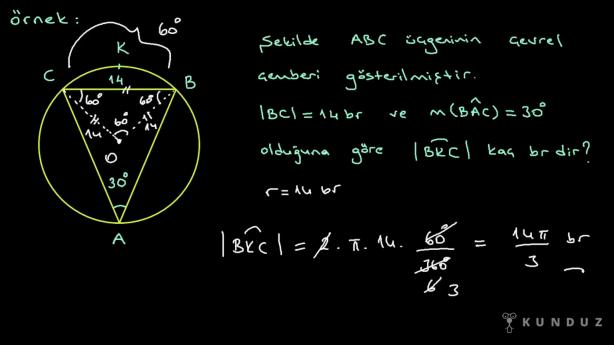 örnek:
60°
K
C
14
B
60°
60°
60°
14
14
O
30°
A
Şekilde ABC üçgeninin çevrel
çemberi gösterilmiştir.
|BC| = 14 br ve m(BÂC) = 30°
olduğuna göre |BKC| kaç br dir?
r = 14 br
|BKC| = 2 . π . 14 . 60°/360° = 14π/3 br
6 3
KUNDUZ